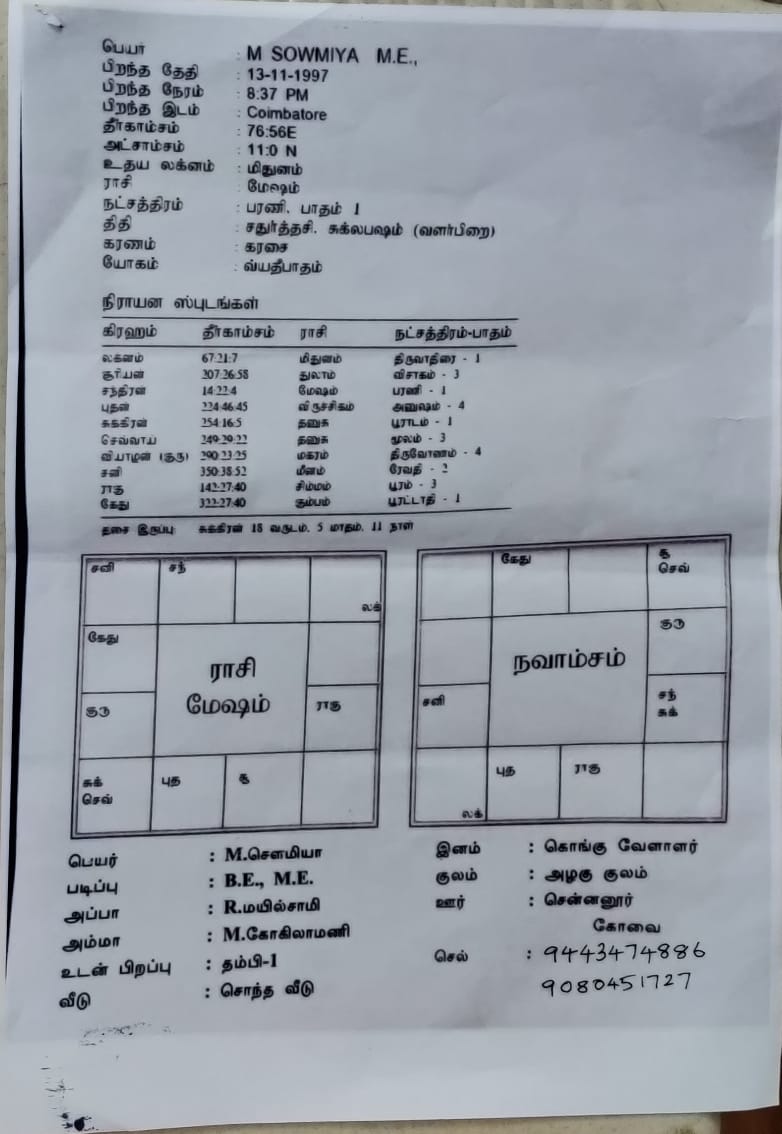 பெயர் : M SOWMIYA M.E.,
பிறந்த தேதி : 13-11-1997
பிறந்த நேரம் : 8:37 PM
பிறந்த இடம் : Coimbatore
தீர்காம்சம் : 76:56E
அட்சாம்சம் : 11:0 N
உதய லக்னம் : மிதுனம்
ராசி : மேஷம்
நட்சத்திரம் : பரணி. பாதம் 1
திதி : சதுர்த்தசி. சுக்லபஷம் (வளர்பிறை)
கரணம் : கரசை
யோகம் : வ்யதீபாதம்
நிராயன ஸ்புடங்கள்
கிரஹம் தீர்காம்சம் ராசி நட்சத்திரம்-பாதம்
லக்னம் 67:21:7 மிதுனம் திருவாதிரை - 1
சூரியன் 207:26:58 துலாம் விசாகம் - 3
சந்திரன் 14:22:4 மேஷம் பரணி - 1
புதன் 224:46:45 விருச்சிகம் அனுஷம் - 4
சுக்கிரன் 254:16:5 தனுசு பூராடம் - 1
செவ்வாய் 249:29:22 தனுசு மூலம் - 3
வியாழன் (குரு) 290:23:25 மகரம் திருவோணம் - 4
சனி 350:38:52 மீனம் ரேவதி - 2
ராகு 142:27:40 சிம்மம் பூரம் - 3
கேது 322:27:40 கும்பம் பூரட்டாதி - 1
தசை இருப்பு சுக்கிரன் 18 வருடம். 5 மாதம். 11 நாள்
சனி சந்
லக்
கேது
ராசி
மேஷம்
குரு ராகு
சுக்
செவ்
புத சூ
கேது சூ
செவ்
குரு
நவாம்சம்
சனி சந்
சுக்
புத ராகு
லக்
பெயர் : M.சௌமியா
படிப்பு : B.E., M.E.
அப்பா : R.மயில்சாமி
அம்மா : M.கோகிலாமணி
உடன் பிறப்பு : தம்பி-1
வீடு : சொந்த வீடு
இனம் : கொங்கு வேளாளர்
குலம் : அழகு குலம்
ஊர் : சென்னனூர்
கோவை
செல் : 9443474886
9080451727